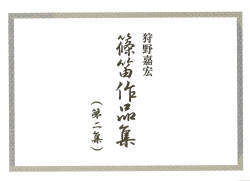 狩野嘉宏
篠笛作品集
(第二集)